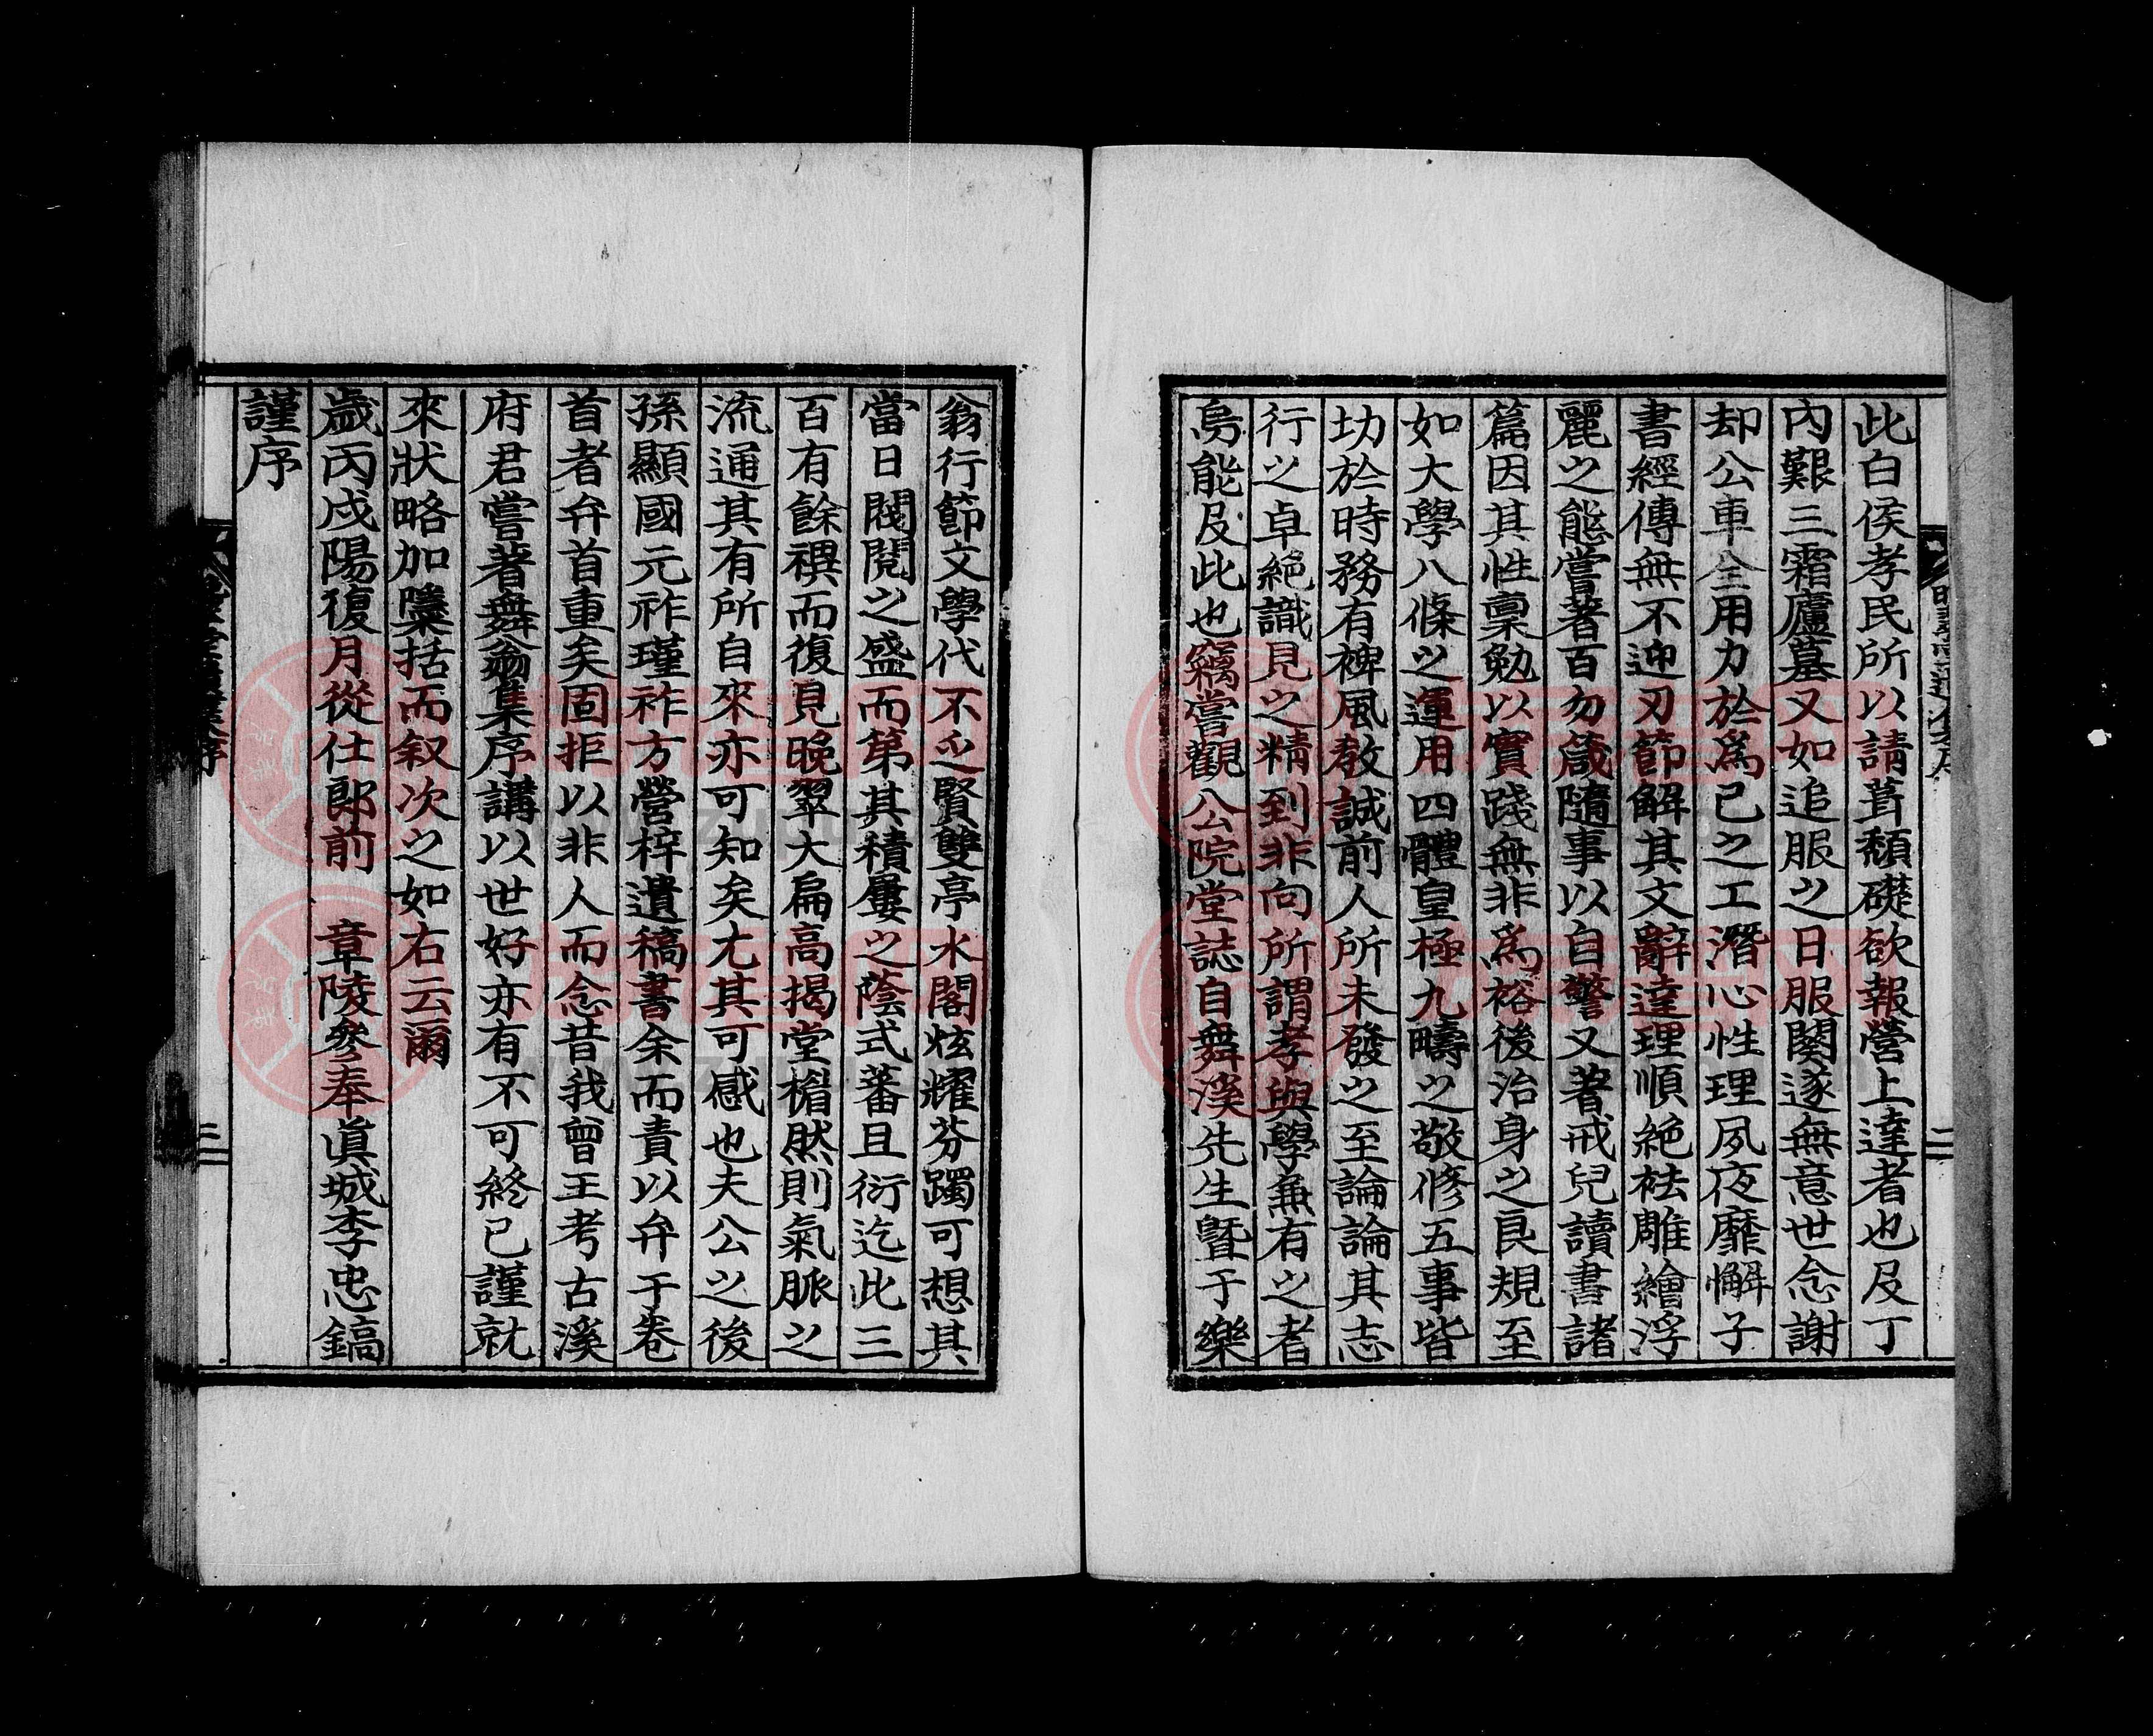 此白侯孝民所以請葺頹礎欲報營上達者也及丁
內艱三霜廬墓又如追服之日服闋遂無意世念謝
却公車全用力於爲己之工潛心性理夙夜靡懈子
書經傳無不迎刃節解其文辭達理順絶祛雕繪浮
麗之態嘗著百勿箴隨事以自警又著戒兒讀書諸
篇因其性稟勉以實踐無非爲裕後治身之良規至
如大學八條之運用四體皇極九疇之敬修五事皆
功於時務有裨風教誠前人所未發之至論論其志
行之卓絶識見之精到非向所謂孝與學兼有之者
烏能及此也竊嘗觀公院堂誌自舞溪先生暨于樂
翁行節文學代不乏賢雙亭水閣炫耀芬躅可想其
當日閥閱之盛而第其積屢之蔭式蕃且衍迄此三
百有餘禩而復見晚翠大扁高揭堂楣然則氣脈之
流通其有所自來亦可知矣尤其可感也夫公之後
孫顯國元祚瑾祚方營梓遺稿書余而責以弁于卷
首者弁首重矣固拒以非人而念昔我曾王考古溪
府君嘗著舞翁集序講以世好亦有不可終已謹就
來狀略加檃括而叙次之如右云爾
歲丙戌陽復月從仕郎前 章陵參奉眞城李忠鎬
謹序
二
三